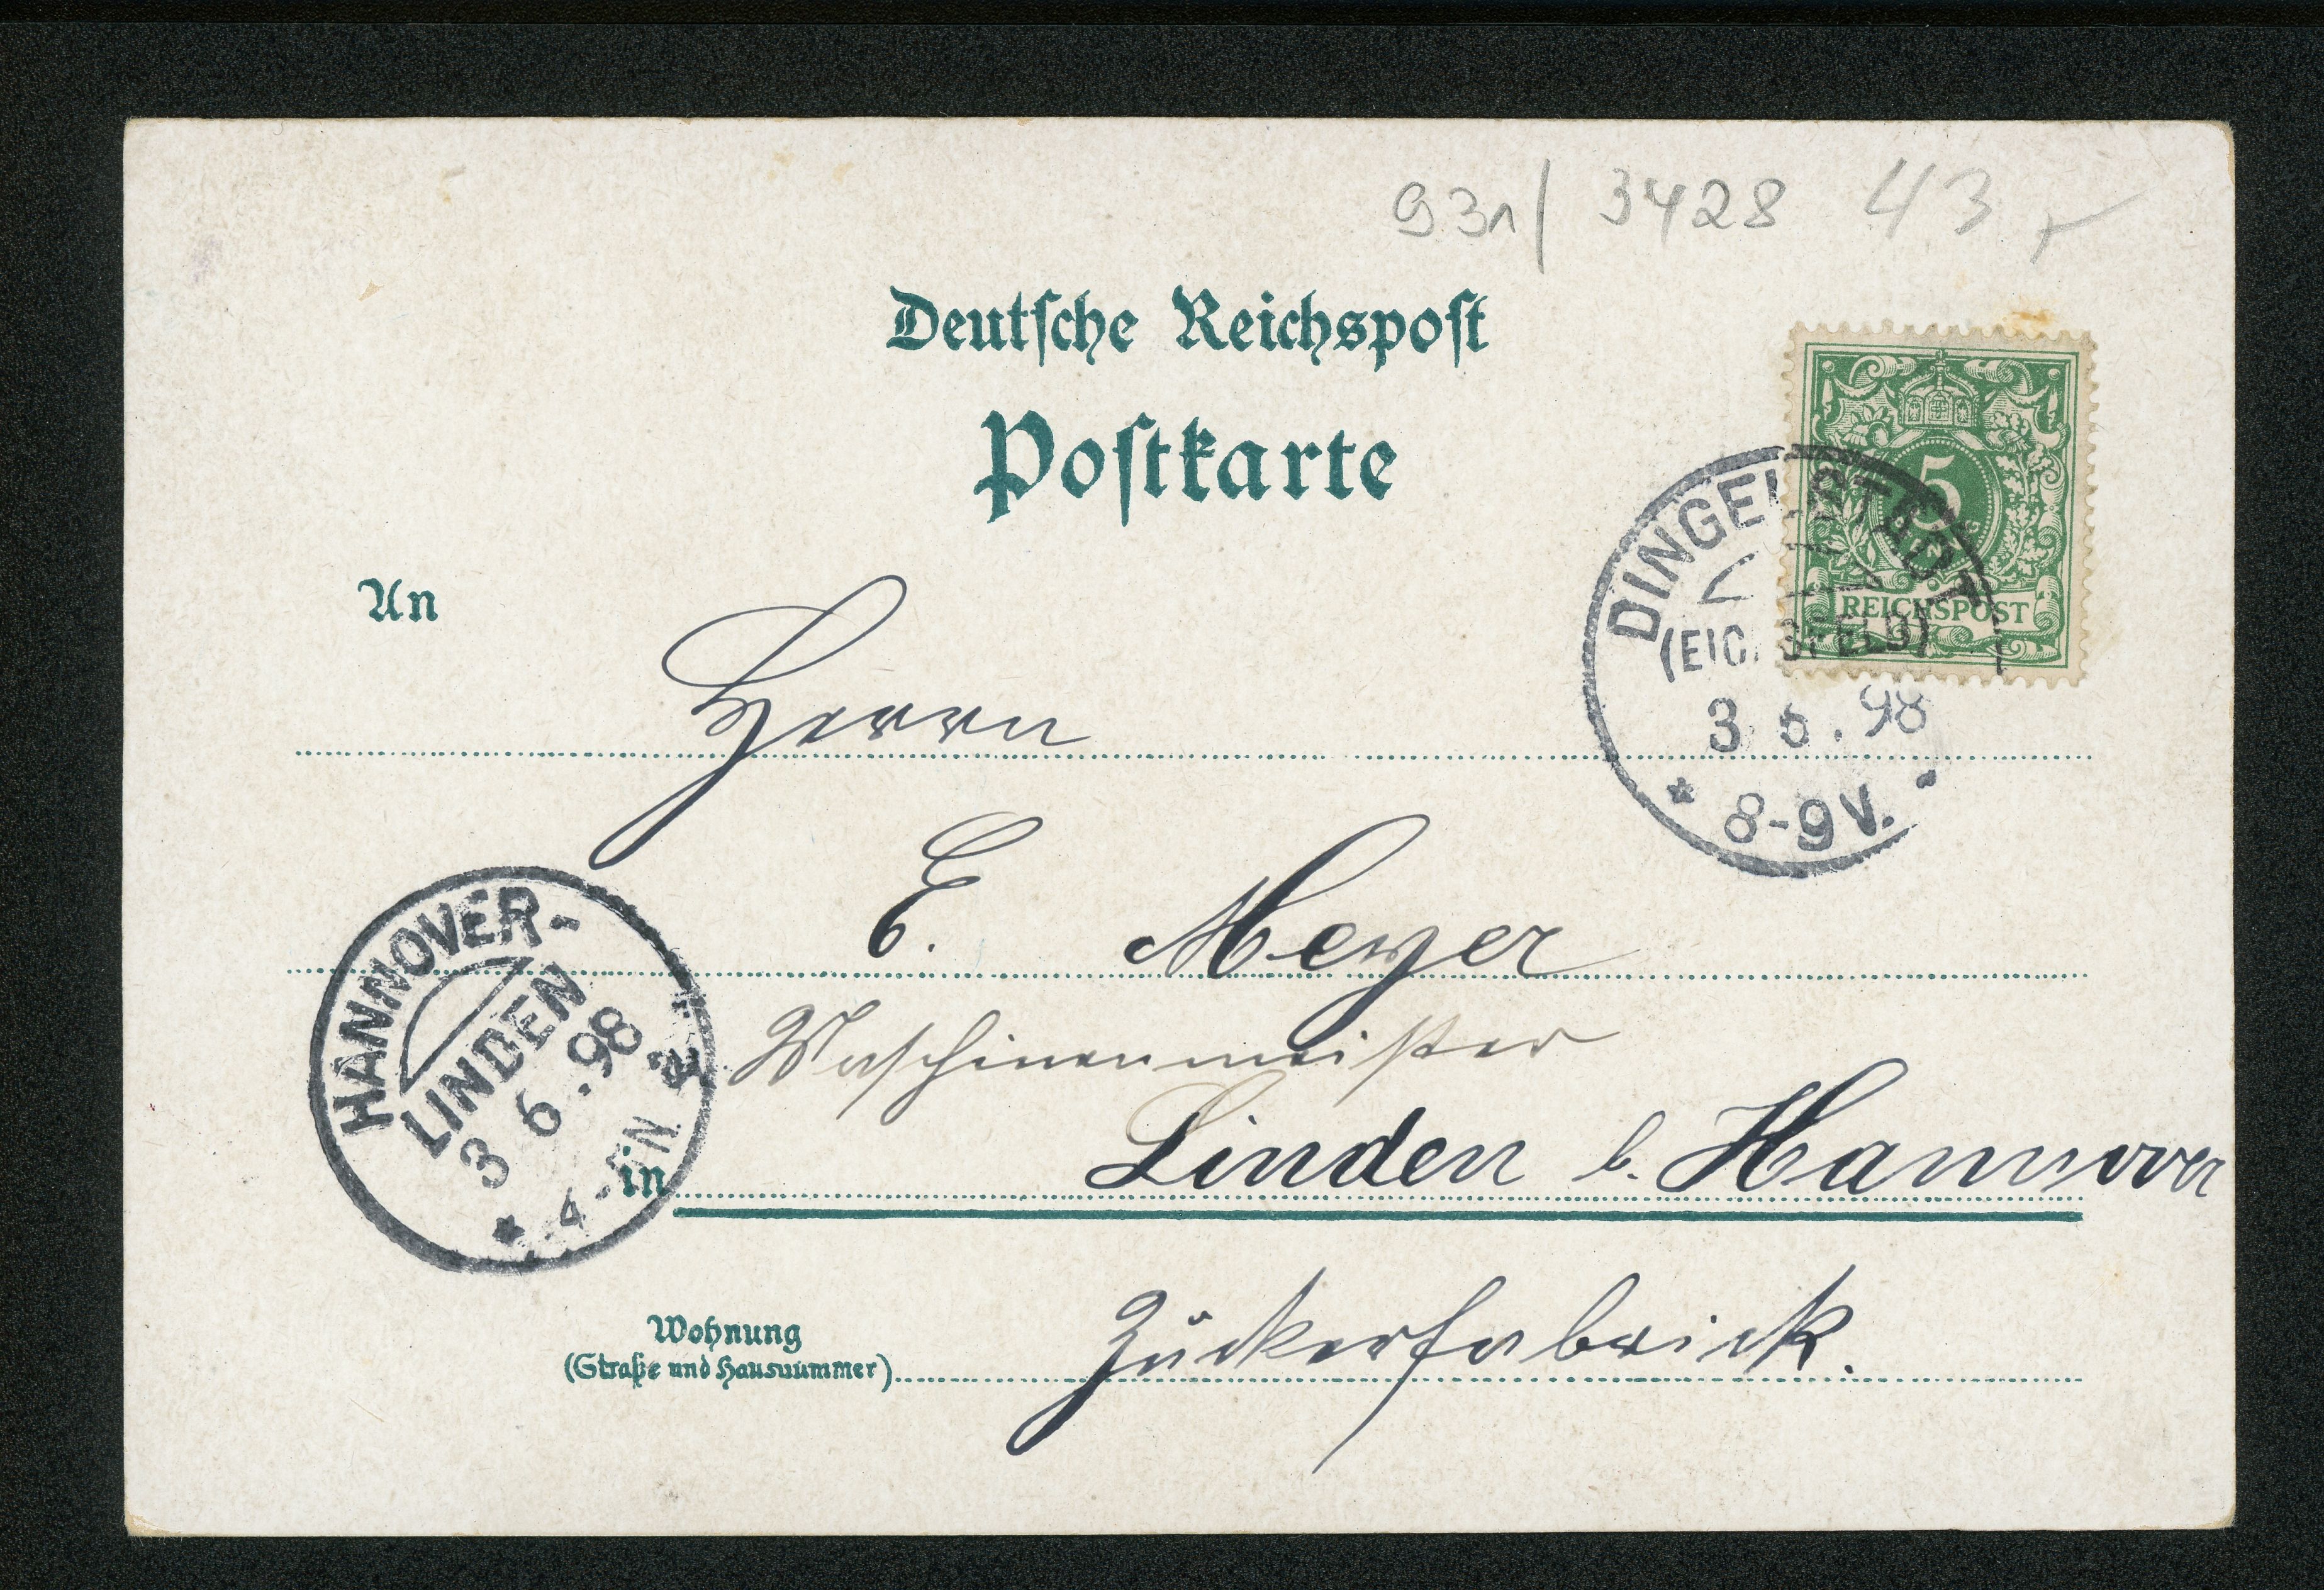 931/ 3428 43
Deutsche Reichspost
Postkarte
5
REICHSPOST
DINGELSTÄDT
(EICHSFELD)
3 6. 98
* 8-9V.
An
Herrn
E. Meyer
Maschinenmeister
HANNOVER-
LINDEN
3 6.98
* 4-5N *
in Linden b. Hannover
Wohnung
(Straße und Hausnummer)
Zuckerfabrick.